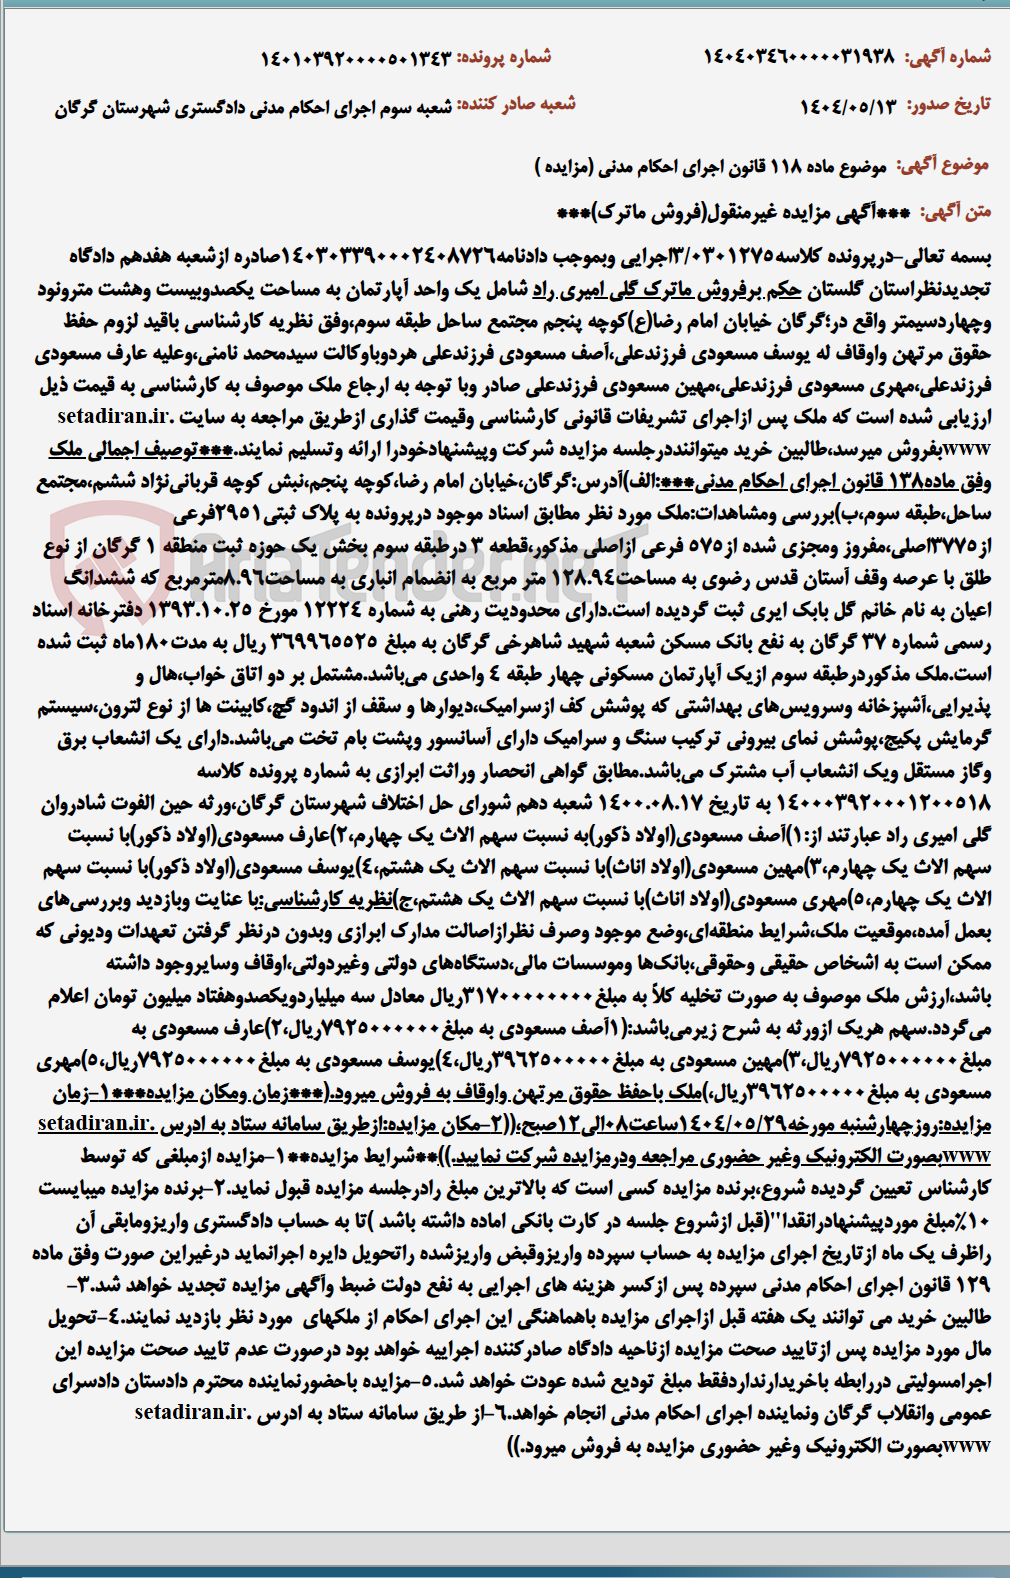 شماره آگهی: ۱۴۰۴۰۳۴۶۰۰۰۰۰۳۱۹۳۸ شماره پرونده: ۱۴۰۱۰۳۹۲۰۰۰۰۵۰۱۳۴۳
تاریخ صدور: ۱۴۰۴/۰۵/۱۳ شعبه صادر کننده: شعبه سوم اجرای احکام مدنی دادگستری شهرستان گرگان
موضوع آگهی: موضوع ماده ۱۱۸ قانون اجرای احکام مدنی (مزایده )
متن آگهی: ***آگهی مزایده غیرمنقول(فروش ماترک)***
بسمه تعالی-درپرونده کلاسه۳/۰۳۰۱۲۷۵اجرایی وبموجب دادنامه۱۴۰۳۰۳۳۹۰۰۰۲۴۰۸۷۲۶صادره ازشعبه هفدهم دادگاه
تجدیدنظراستان گلستان حکم برفروش ماترک گلی امیری راد شامل یک واحد آپارتمان به مساحت یکصدوبیست وهشت مترونود
وچهاردسیمتر واقع در؛گرگان خیابان امام رضا(ع)کوچه پنجم مجتمع ساحل طبقه سوم،وفق نظریه کارشناسی باقید لزوم حفظ
حقوق مرتهن واوقاف له یوسف مسعودی فرزندعلی،آصف مسعودی فرزندعلی هردوباوکالت سیدمحمد نامنی،وعلیه عارف مسعودی
فرزندعلی،مهری مسعودی فرزندعلی،مهین مسعودی فرزندعلی صادر وبا توجه به ارجاع ملک موصوف به کارشناسی به قیمت ذیل
ارزیابی شده است که ملک پس ازاجرای تشریفات قانونی کارشناسی وقیمت گذاری ازطریق مراجعه به سایت .setadiran.ir
wwwبفروش میرسد،طالبین خرید میتواننددرجلسه مزایده شرکت وپیشنهادخودرا ارائه وتسلیم نمایند.***توصیف اجمالی ملک
وفق ماده۱۳۸ قانون اجرای احکام مدنی***:الف)آدرس:گرگان،خیابان امام رضا،کوچه پنجم،نبش کوچه قربانی‌نژاد ششم،مجتمع
ساحل،طبقه سوم،ب)بررسی ومشاهدات:ملک مورد نظر مطابق اسناد موجود درپرونده به پلاک ثبتی۲۹۵۱فرعی
از۳۷۷۵اصلی،مفروز ومجزی شده از۵۷۵ فرعی ازاصلی مذکور،قطعه ۳ درطبقه سوم بخش یک حوزه ثبت منطقه ۱ گرگان از نوع
طلق با عرصه وقف آستان قدس رضوی به مساحت۱۲۸.۹۴ متر مربع به انضمام انباری به مساحت۸.۹۶مترمربع که ششدانگ
اعیان به نام خانم گل بابک ایری ثبت گردیده است.دارای محدودیت رهنی به شماره ۱۲۲۲۴ مورخ ۱۳۹۳.۱۰.۲۵ دفترخانه اسناد
رسمی شماره ۳۷ گرگان به نفع بانک مسکن شعبه شهید شاهرخی گرگان به مبلغ ۳۶۹۹۶۵۵۲۵ ریال به مدت۱۸۰ماه ثبت شده
است.ملک مذکوردرطبقه سوم ازیک آپارتمان مسکونی چهار طبقه ۴ واحدی می‌باشد.مشتمل بر دو اتاق خواب،هال و
پذیرایی،آشپزخانه وسرویس‌های بهداشتی که پوشش کف ازسرامیک،دیوارها و سقف از اندود گچ،کابینت ها از نوع لترون،سیستم
گرمایش پکیج،پوشش نمای بیرونی ترکیب سنگ و سرامیک دارای آسانسور وپشت بام تخت می‌باشد.دارای یک انشعاب برق
وگاز مستقل ویک انشعاب آب مشترک می‌باشد.مطابق گواهی انحصار وراثت ابرازی به شماره پرونده کلاسه
۱۴۰۰۰۳۹۲۰۰۰۱۲۰۰۵۱۸ به تاریخ ۱۴۰۰.۰۸.۱۷ شعبه دهم شورای حل اختلاف شهرستان گرگان،ورثه حین الفوت شادروان
گلی امیری راد عبارتند از:۱)آصف مسعودی(اولاد ذکور)به نسبت سهم الاث یک چهارم،۲)عارف مسعودی(اولاد ذکور)با نسبت
سهم الاث یک چهارم،۳)مهین مسعودی(اولاد اناث)با نسبت سهم الاث یک هشتم،۴)یوسف مسعودی(اولاد ذکور)با نسبت سهم
الاث یک چهارم،۵)مهری مسعودی(اولاد اناث)با نسبت سهم الاث یک هشتم،ج)نظریه کارشناسی:با عنایت وبازدید وبررسی‌های
بعمل آمده،موقعیت ملک،شرایط منطقه‌ای،وضع موجود وصرف نظرازاصالت مدارک ابرازی وبدون درنظر گرفتن تعهدات ودیونی که
ممکن است به اشخاص حقیقی وحقوقی،بانک‌ها وموسسات مالی،دستگاه‌های دولتی وغیردولتی،اوقاف وسایروجود داشته
باشد،ارزش ملک موصوف به صورت تخلیه کلاً به مبلغ۳۱۷۰۰۰۰۰۰۰۰ریال معادل سه میلیاردویکصدوهفتاد میلیون تومان اعلام
می‌گردد.سهم هریک ازورثه به شرح زیرمی‌باشد:(۱آصف مسعودی به مبلغ۷۹۲۵۰۰۰۰۰۰ریال،۲)عارف مسعودی به
مبلغ۷۹۲۵۰۰۰۰۰۰ریال،۳)مهین مسعودی به مبلغ۳۹۶۲۵۰۰۰۰۰ریال،۴)یوسف مسعودی به مبلغ۷۹۲۵۰۰۰۰۰۰ریال،۵)مهری
مسعودی به مبلغ۳۹۶۲۵۰۰۰۰۰ریال،)ملک باحفظ حقوق مرتهن واوقاف به فروش میرود.(***زمان ومکان مزایده***۱-زمان
مزایده:روزچهارشنبه مورخه۱۴۰۴/۰۵/۲۹ساعت۰۸الی۱۲صبح،((۲-مکان مزایده:ازطریق سامانه ستاد به ادرس .setadiran.ir
wwwبصورت الکترونیک وغیر حضوری مراجعه ودرمزایده شرکت نمایید.))**شرایط مزایده**۱-مزایده ازمبلغی که توسط
کارشناس تعیین گردیده شروع،برنده مزایده کسی است که بالاترین مبلغ رادرجلسه مزایده قبول نماید.۲-برنده مزایده میبایست
۱۰%مبلغ موردپیشنهادرانقدا"(قبل ازشروع جلسه در کارت بانکی اماده داشته باشد )تا به حساب دادگستری واریزومابقی آن
راظرف یک ماه ازتاریخ اجرای مزایده به حساب سپرده واریزوقبض واریزشده راتحویل دایره اجرانماید درغیراین صورت وفق ماده
۱۲۹ قانون اجرای احکام مدنی سپرده پس ازکسر هزینه های اجرایی به نفع دولت ضبط وآگهی مزایده تجدید خواهد شد.۳-
طالبین خرید می توانند یک هفته قبل ازاجرای مزایده باهماهنگی این اجرای احکام از ملکهای مورد نظر بازدید نمایند.۴-تحویل
مال مورد مزایده پس ازتایید صحت مزایده ازناحیه دادگاه صادرکننده اجراییه خواهد بود درصورت عدم تایید صحت مزایده این
اجرامسولیتی دررابطه باخریدارنداردفقط مبلغ تودیع شده عودت خواهد شد.۵-مزایده باحضورنماینده محترم دادستان دادسرای
عمومی وانقلاب گرگان ونماینده اجرای احکام مدنی انجام خواهد.۶-از طریق سامانه ستاد به ادرس .setadiran.ir
wwwبصورت الکترونیک وغیر حضوری مزایده به فروش میرود.))
AriaTender.neT